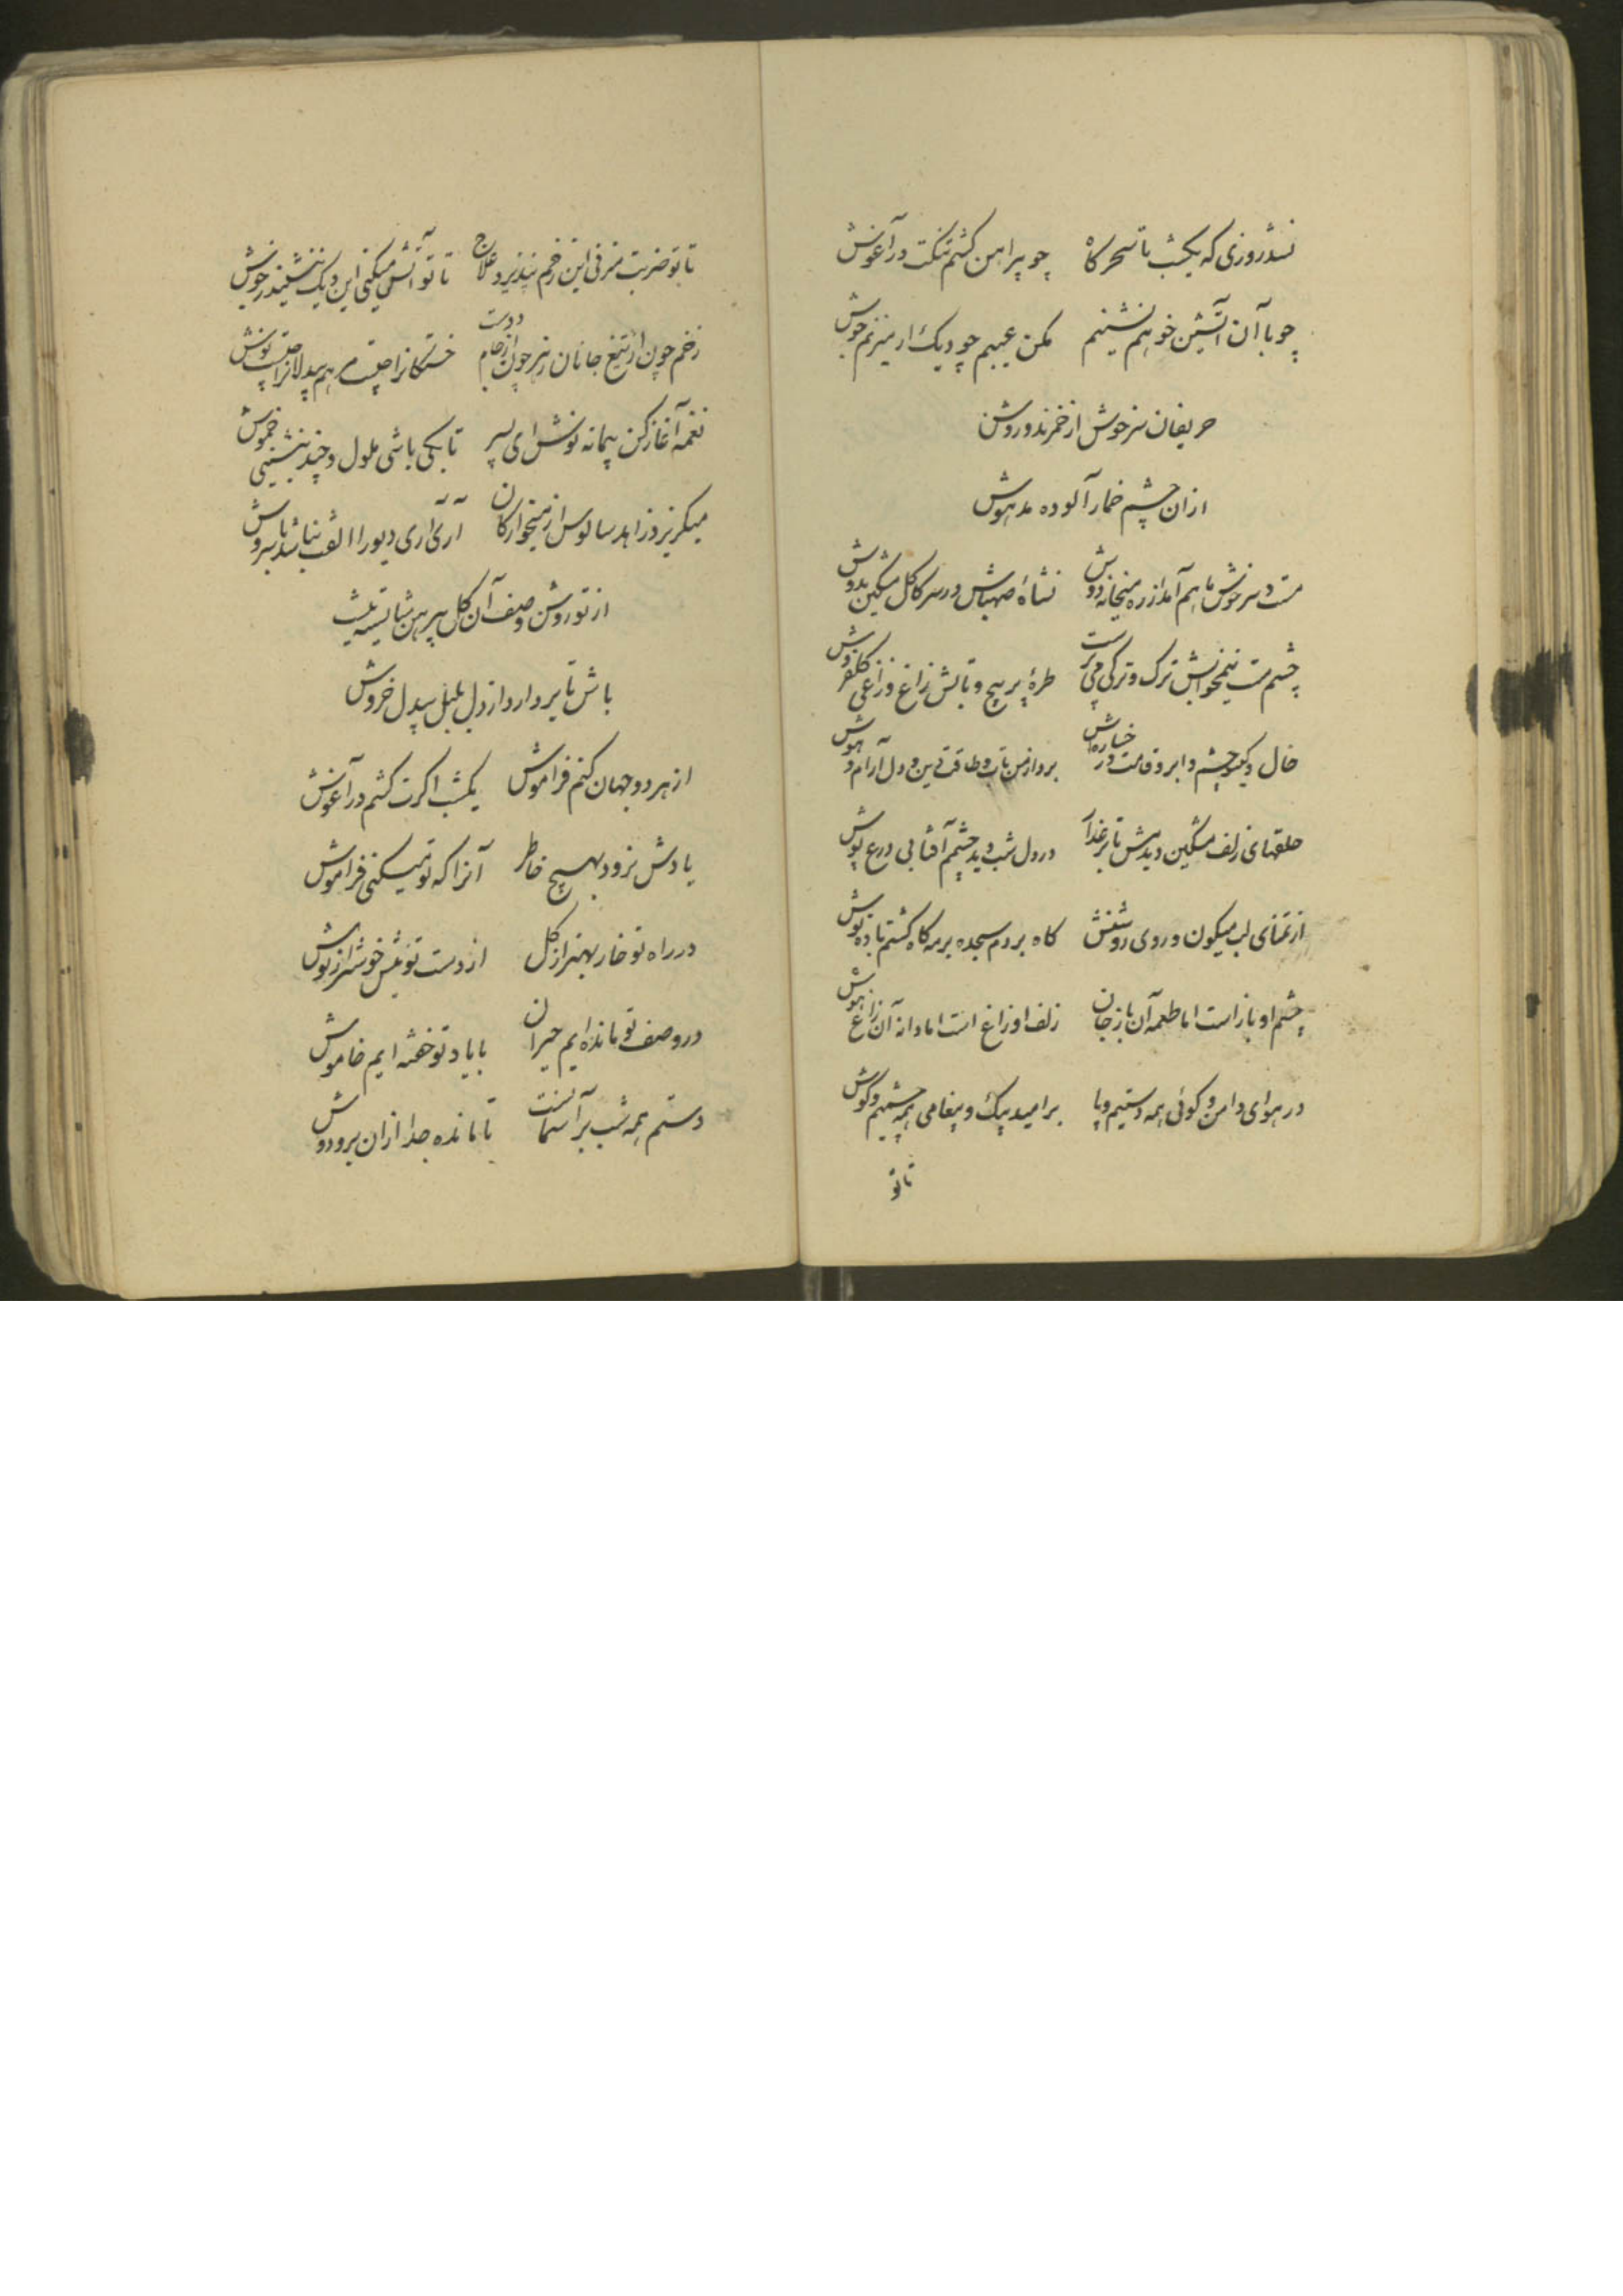 نشد روزی که یکشب تا سحرگاه چو پیراهن کشم تنگت در آغوش
چو با آن آتشین خو هم نشینم مکن عیبم چو دیک ار میزنم جوش
حریفان سرخوش از خمرند و روشن
ازان چشم خمار آلوده مدهوش
مست و سرخوش ماهم آمد از ره میخانه دوش نشاهٔ صهباش در سر کاکل مشکین بدوش
چشم مست نیمخوابش ترک و ترکی می پرست طرهٔ پر پیچ و تابش زاغ و زاغی گلفروش
خال و گیسو چشم و ابرو قامت و رخساره اش برد از من تاب و طاقت دین و دل آرام و هوش
حلقهای زلف مشکین دیدمش تا بر عذار در دل شب دید چشمم آفتابی درع پوش
از تمنای لب میگون و روی روشنش گاه بردم سجده بر مه گاه گشتم باده نوش
چشم او باز است اما طعمه آن باز جان زلف او زاغ است اما دانه آن زاغ هوش
در هوای دامن و کوئی همه دستیم و پا بر امید پیک و پیغامی همه چشمیم و گوش
تا تو
تا تو ضربت میزنی این زخم نپذیرد علاج تا تو آتش میکنی این دیک ننشیند ز جوش
زخم چون از تیغ جانان زهر چون از جام دوست خستگانرا چیست مرهم بیدلانرا چیست نوش
نغمه آغاز کن پیمانه نوش ای پسر تا بکی باشی ملول و چند بنشینی خموش
میگریزد زاهد سالوس از میخوارگان آری آری دیو را الفت نباشد با سروش
از تو روشن وصف آن گل پیرهن شایسته نیست
باش تا بر دارد از دل بلبل بیدل خروش
از هر دو جهان کنم فراموش یکشب اگرت کشم در آغوش
یادش نرود بهیچ خاطر آنرا که تو میکنی فراموش
در راه تو خار بهتر از گل از دست تو نیش خوشتر از نوش
در وصف تو مانده ایم حیران با یاد تو خفته ایم خاموش
دستم همه شب بر آسمانست تا مانده جدا ازان بر و دوش